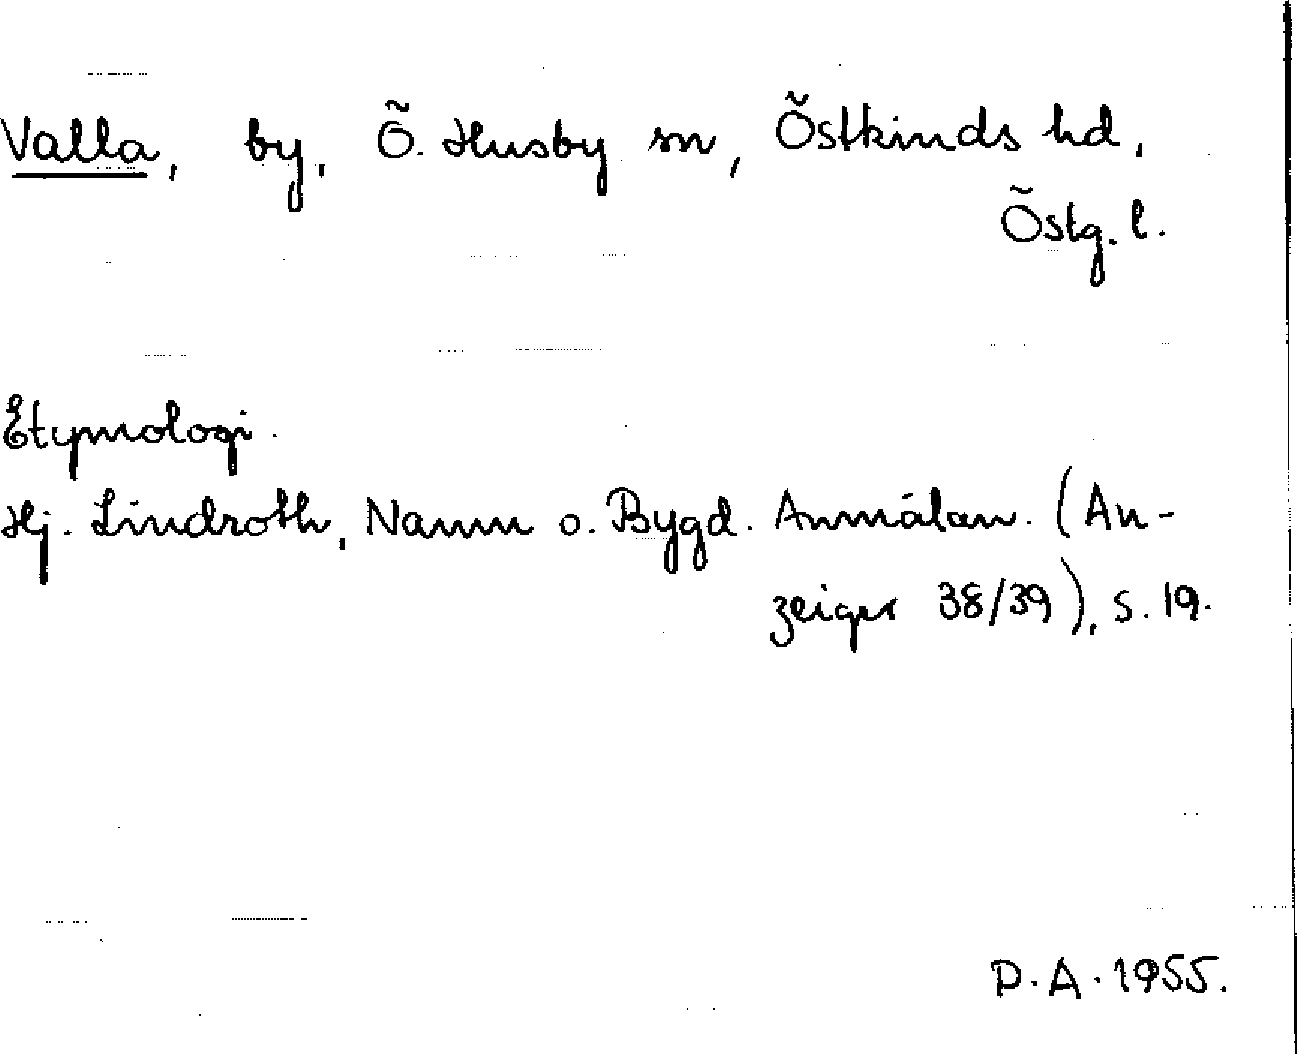 Valla, by, Õ. Husby sn, Õstkinds hd,
Õstg. l.
Etymologi.
Hj. Lindroth, Namn o. Bygd. Anmälan. (An-
zeiger 38/39), s. 19.
D. A. 1955.